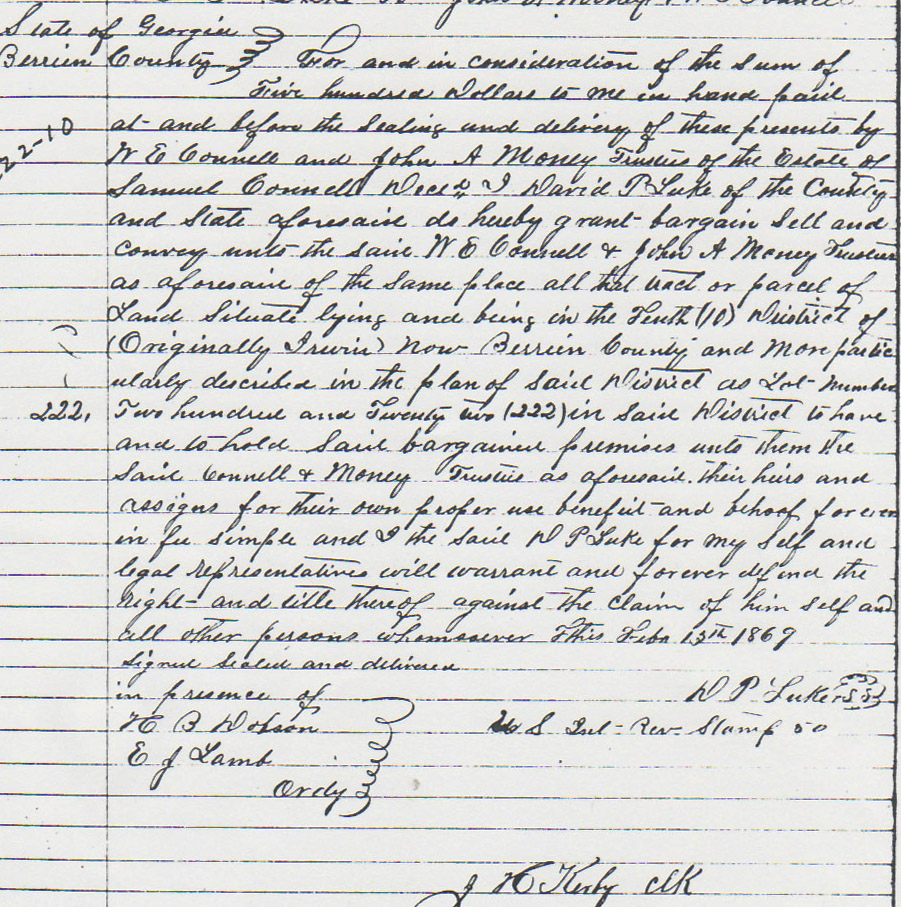 State of Georgia
Berrien County For and in consideration of the Sum of
Five hundred Dollars to me in hand paid
at and before the Sealing and delivery of these presents by
22-10
W E Connell and John A Money Trustees of the Estate of
Samuel Connell Decd I David P Luke of the County
and State aforesaid do hereby grant bargain Sell and
convey unto the said W E Connell & John A Money Trustees
as aforesaid of the same place all that tract or parcel of
Land Situate lying and being in the Tenth (10) District of
(Originally Irwin) Now Berrien County and More partic
ularly described in the plan of Said District as Lot Number
222, Two hundred and Twenty two (222) in Said District to have
and to hold Said bargained premises unto them the
Said Connell & Money Trustees as aforesaid. their heirs and
assigns for their own proper use benefit and behoof forever
in fee simple and I the said D P Luke for my Self and
legal representatives will warrant and forever defend the
right and title thereof against the claim of him self and
all other persons whomsoever This Feby 13th 1869
Signed Sealed and delivered
in presence of D P Luke
H B Dobson U S Int Rev. Stamp 50
E J Lamb
Ordy
J H Kirby clk